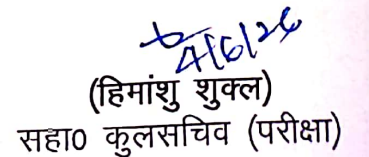 4/6/26
(हिमांशु शुक्ल)
सहा0 कुलसचिव (परीक्षा)